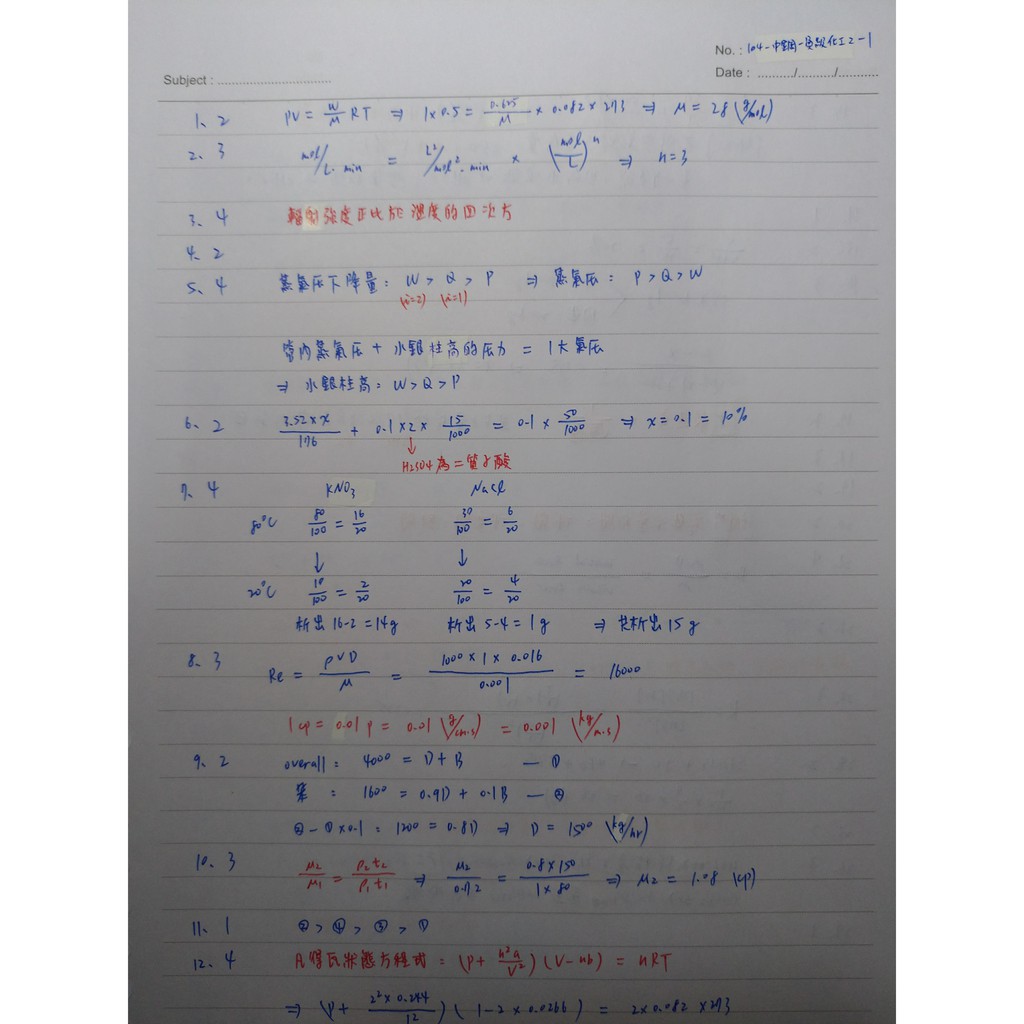 No. : 104-中鋼-員級化工2-1
Subject : ................................
Date : ........../........../..........
1、2 PV = W/M RT ⇒ 1×0.5 = 0.625/M × 0.082 × 273 ⇒ M = 28 (g/mol)
2、3 mol/L·min = L²/mol²·min × (mol/L)ⁿ ⇒ n=3
3、4 輻射強度正比於溫度的四次方
4、2
5、4 蒸氣压下降量: W > Q > P ⇒ 蒸氣压: P > Q > W
(i=2) (i=1)
管內蒸氣压 + 水銀柱高的压力 = 1大氣压
⇒ 水銀柱高: W > Q > P
6、2 3.52×x/176 + 0.1×2× 15/1000 = 0.1 × 50/1000 ⇒ x = 0.1 = 10%
↓
H2SO4為二質子酸
7、4 KNO3 NaCl
80°C 80/100 = 16/20 30/100 = 6/20
↓ ↓
20°C 10/100 = 2/20 20/100 = 4/20
析出 16-2 = 14g 析出 5-4 = 1g ⇒ 共析出 15g
8、3 Re = ρVD/μ = 1000 × 1 × 0.016/0.001 = 16000
1 cp = 0.01 p = 0.01 (g/cm·s) = 0.001 (kg/m·s)
9、2 overall: 4000 = D + B — ①
苯: 1600 = 0.9D + 0.1B — ②
② - ① × 0.1 : 1200 = 0.8D ⇒ D = 1500 (kg/hr)
10、3 μ2/μ1 = ρ2t2/ρ1t1 ⇒ μ2/0.72 = 0.8×150/1×80 ⇒ μ2 = 1.08 (cp)
11、1 ② > ④ > ③ > ①
12、4 凡得瓦狀態方程式: (P + n²a/V²) (V-nb) = nRT
⇒ (P + 2²×0.244/1²) (1-2×0.0266) = 2×0.082×273